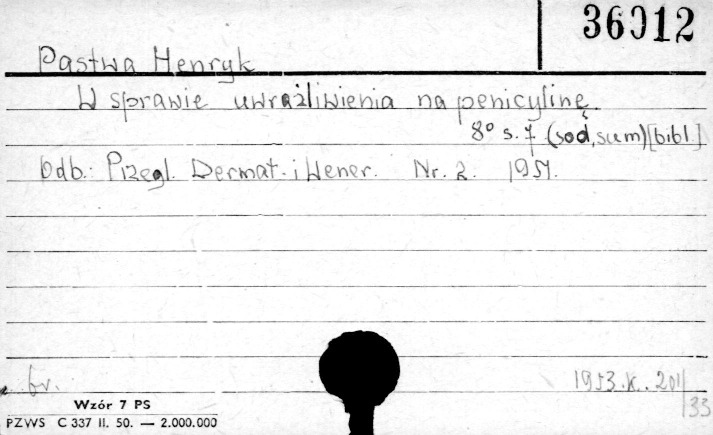 36012
Pastwa Henryk
W sprawie uwrażliwienia na penicylinę.
8° s. 7 (sod, sum) [bibl.]
Odb.: Przegl. Dermat. i Wener. Nr. 2. 1951.
br.
1953.K. 201/33
Wzór 7 PS
PZWS C 337 II. 50. — 2.000.000